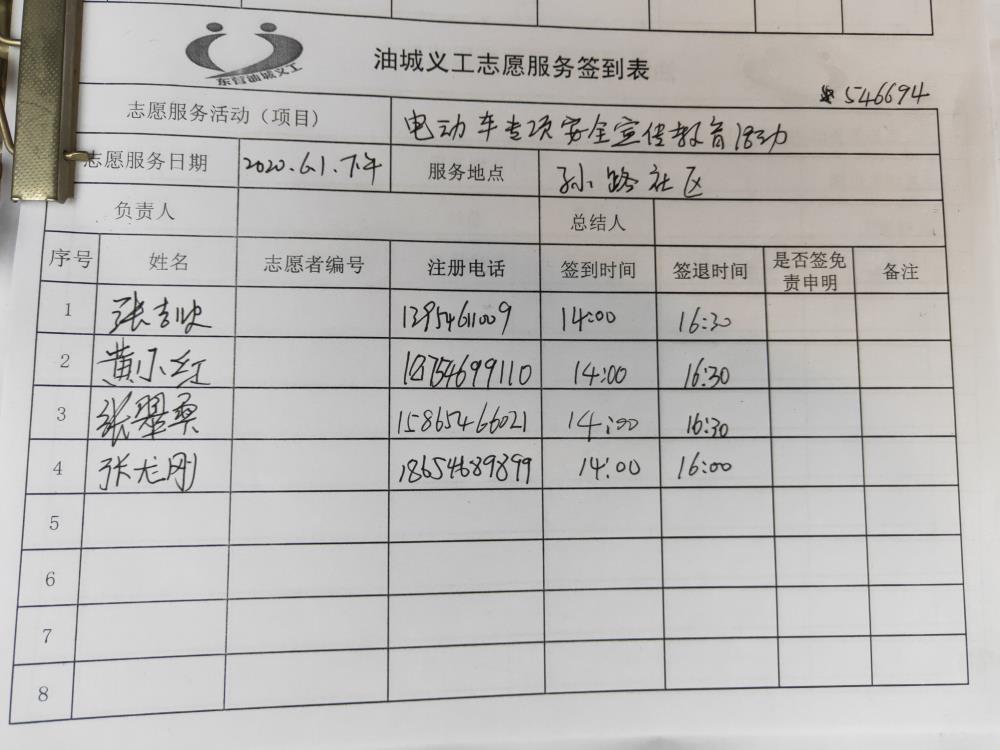 东营油城义工
油城义工志愿服务签到表
546694
志愿服务活动（项目） 电动车专项安全宣传教育活动
志愿服务日期 2020.6.1.下午 服务地点 孙路社区
负责人 总结人
序号 姓名 志愿者编号 注册电话 签到时间 签退时间 是否签免责申明 备注
1 13954611009 14:00 16:30
2 黄小红 18754699110 14:00 16:30
3 张翠勇 15865466021 14:00 16:30
4 张龙刚 18654689899 14:00 16:00
5
6
7
8